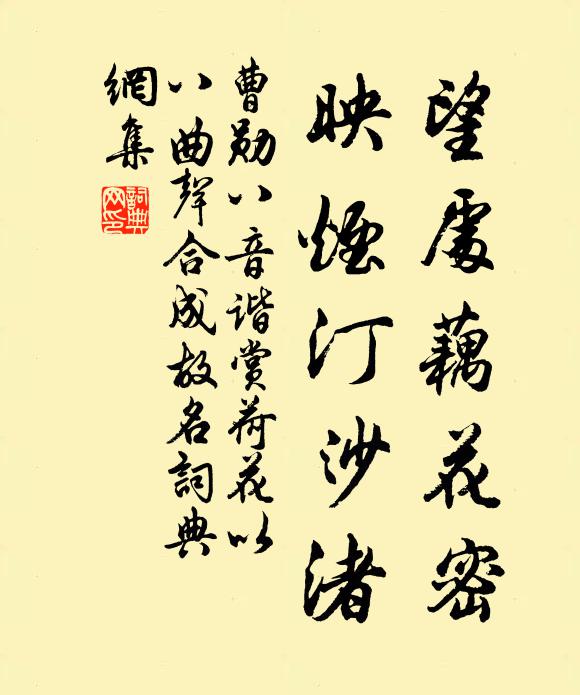 望處藕花密
映煙汀沙渚
曹勛八音諧賞荷花以
八曲聲合成故名詞典
網集
詞典
网印